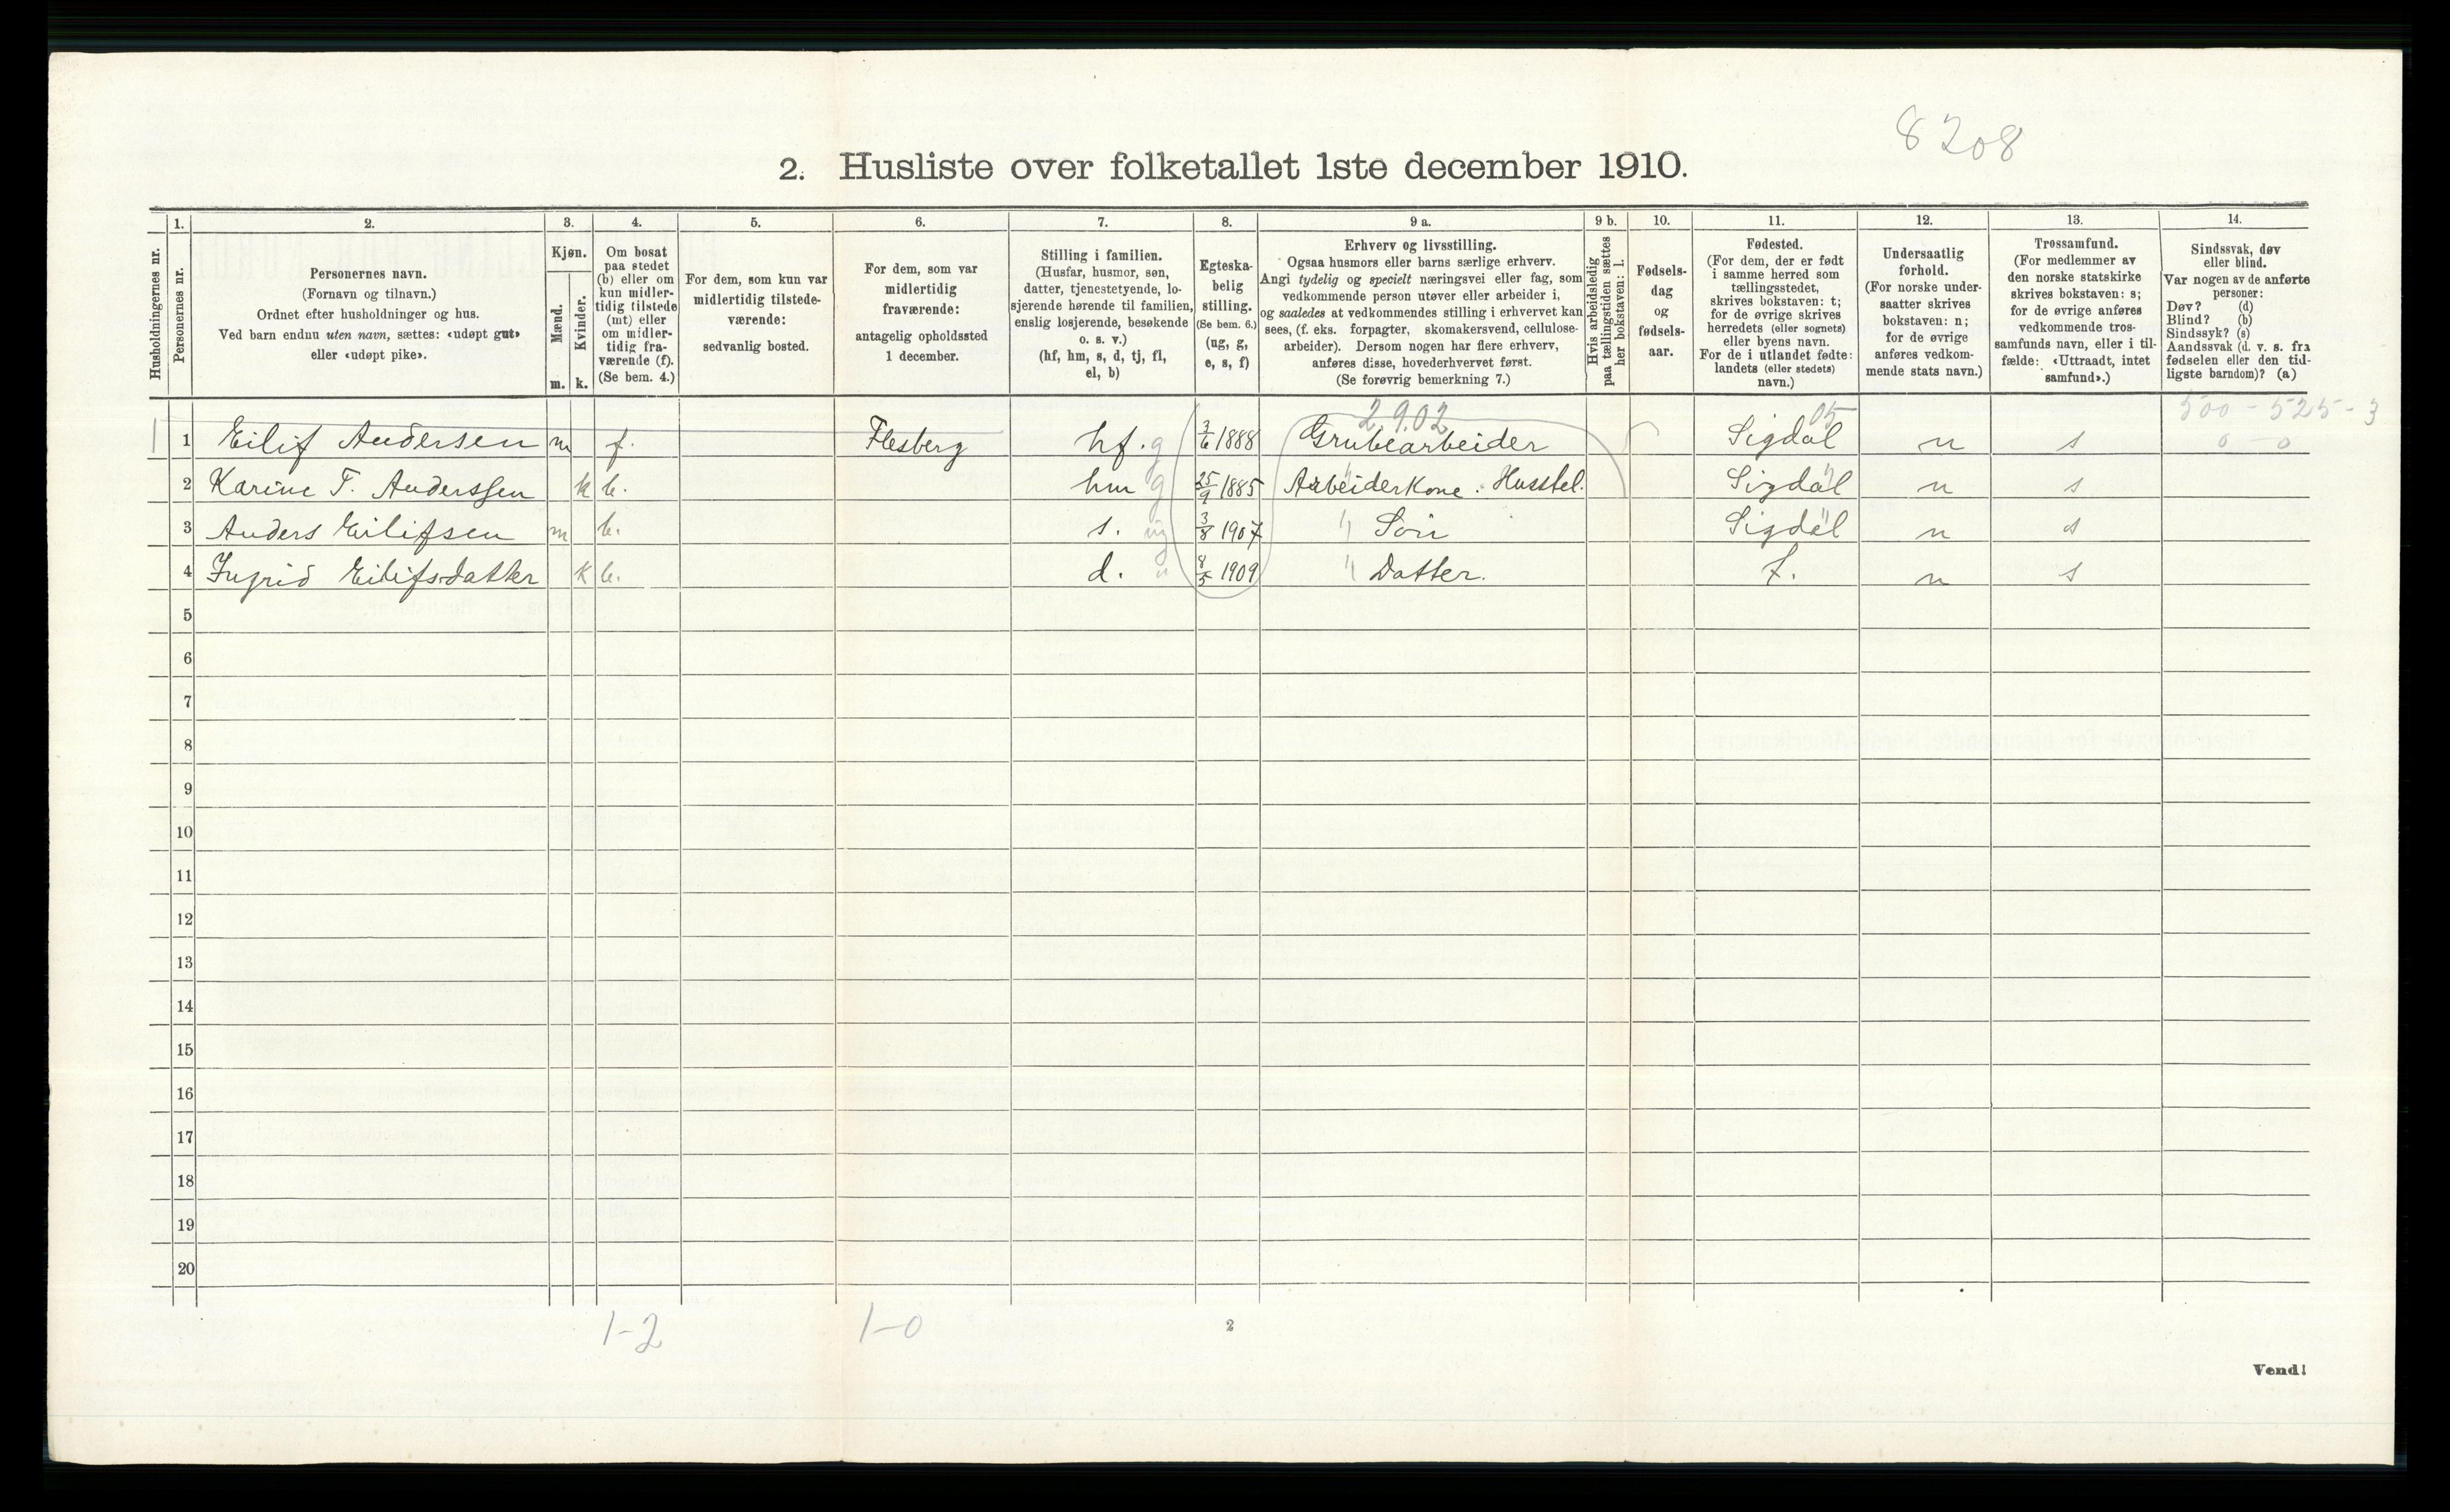 8208
2. Husliste over folketallet 1ste december 1910.
Husholdningernes nr.
1.
Personernes nr.
2.
Personernes navn.
(Fornavn og tilnavn.)
Ordnet efter husholdninger og hus.
Ved barn endnu uten navn, sættes: «udøpt gut»
eller «udøpt pike».
3.
Kjøn.
Mænd.
Kvinder.
m. k.
4.
Om bosat
paa stedet
(b) eller om
kun midler-
tidig tilstede
(mt) eller
om midler-
tidig fra-
værende (f).
(Se bem. 4.)
5.
For dem, som kun var
midlertidig tilstede-
værende:
sedvanlig bosted.
6.
For dem, som var
midlertidig
fraværende:
antagelig opholdssted
1 december.
7.
Stilling i familien.
(Husfar, husmor, søn,
datter, tjenestetyende, lo-
sjerende hørende til familien,
enslig losjerende, besøkende
o. s. v.)
(hf, hm, s, d, tj, fl,
el, b)
8.
Egteska-
belig
stilling.
(Se bem. 6.)
(ug, g,
e, s, f)
9 a.
Erhverv og livsstilling.
Ogsaa husmors eller barns særlige erhverv.
Angi tydelig og specielt næringsvei eller fag, som
vedkommende person utøver eller arbeider i,
og saaledes at vedkommendes stilling i erhvervet kan
sees, (f. eks. forpagter, skomakersvend, cellulose-
arbeider). Dersom nogen har flere erhverv,
anføres disse, hovederhvervet først.
(Se forøvrig bemerkning 7.)
9 b.
Hvis arbeidsledig
paa tællingstiden sættes
her bokstaven: l.
10.
Fødsels-
dag
og
fødsels-
aar.
11.
Fødested.
(For dem, der er født
i samme herred som
tællingsstedet,
skrives bokstaven: t;
for de øvrige skrives
herredets (eller sognets)
eller byens navn.
For de i utlandet fødte:
landets (eller stedets)
navn.)
12.
Undersaatlig
forhold.
(For norske under-
saatter skrives
bokstaven: n;
for de øvrige
anføres vedkom-
mende stats navn.)
13.
Trossamfund.
(For medlemmer av
den norske statskirke
skrives bokstaven: s;
for de øvrige anføres
vedkommende tros-
samfunds navn, eller i til-
fælde: «Uttraadt, intet
samfund».)
14.
Sindssvak, døv
eller blind.
Var nogen av de anførte
personer:
Døv? (d)
Blind? (b)
Sindssyk? (s)
Aandssvak (d. v. s. fra
fødselen eller den tid-
ligste barndom)? (a)
2902 05 500-525-3
1 1 Eilif Andersen m f. Flesberg hf. g 3/6 1888 Grubearbeider Sigdal n s 0-0
2 Karine T. Anderssen k b. hm g 25/9 1885 Arbeiderkone. Husstel. Sigdal " n s
3 Anders Eilifsen m b. s. ug 3/8 1907 " Sön Sigdal " n s
4 Ingrid Eilifsdatter k b. d. " 8/5 1909 " Datter. t. n s
5
6
7
8
9
10
11
12
13
14
15
16
17
18
19
20
1-2 1-0
2
Vend!